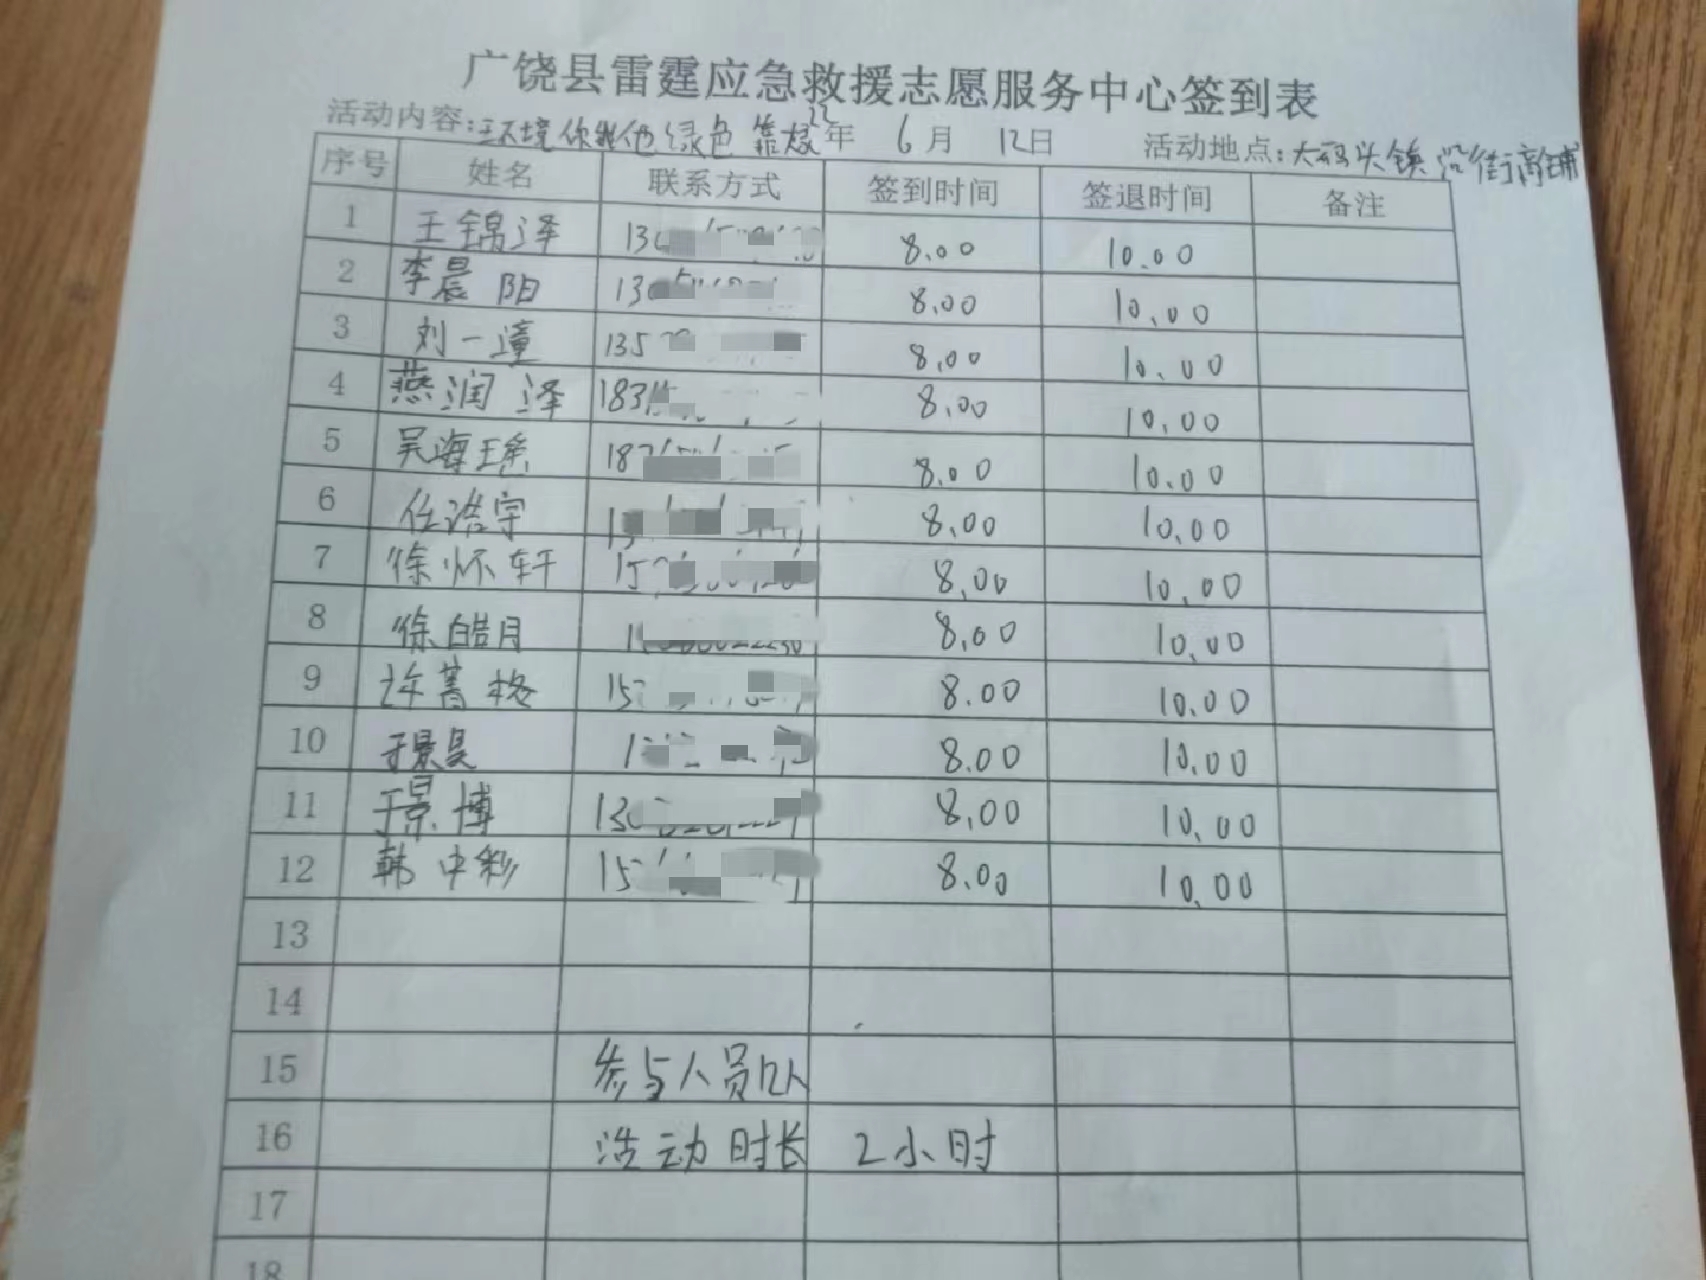 广饶县雷霆应急救援志愿服务中心签到表
活动内容:环境你我他绿色 22年 6月 12日 活动地点:大码头镇沿街商铺
序号 姓名 联系方式 签到时间 签退时间 备注
1 王锦泽 8.00 10.00
2 李晨阳 8.00 10.00
3 刘一潼 135 8.00 10.00
4 燕润泽 1831 8.00 10.00
5 吴海瑶 187 8.00 10.00
6 任浩宇 8.00 10.00
7 徐怀轩 8.00 10.00
8 徐皓月 8.00 10.00
9 许菁格 15 8.00 10.00
10 于景昊 8.00 10.00
11 于景博 13 8.00 10.00
12 韩中彩 15 8.00 10.00
13
14
15 参与人员12人
16 活动时长 2小时
17
18